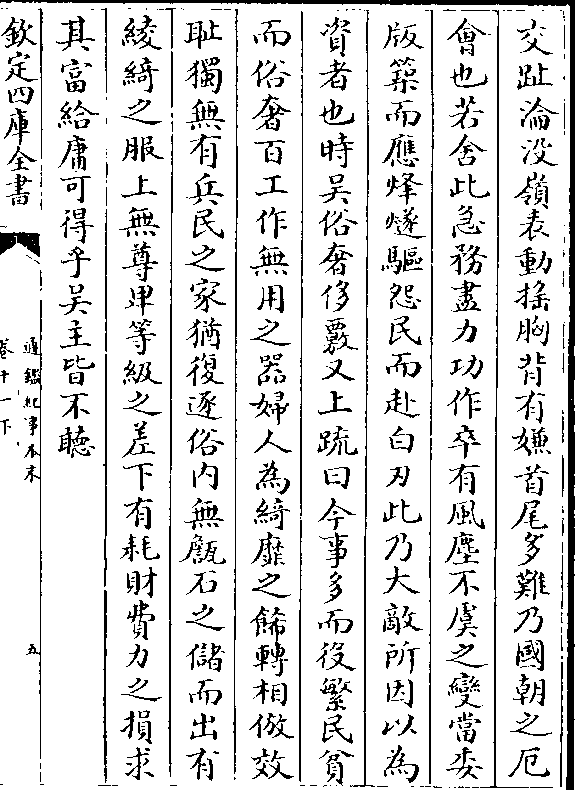 交趾淪没嶺表動揺胸背有嫌首尾多難乃國朝之厄
會也若舍此急務盡力功作卒有風塵不虞之變當委
版築而應烽燧驅怨民而赴白刃此乃大敵所因以為
資者也時吳俗奢侈覈又上疏曰今事多而役繁民貧
而俗奢百工作無用之器婦人為綺靡之餙轉相倣效
耻獨無有兵民之家猶復逐俗内無甔石之儲而出有
綾綺之服上無尊卑等級之差下有耗財費力之損求
其富給庸可得乎吳主皆不聽
欽定四庫全書
通鑑紀事本末
卷十一下
五